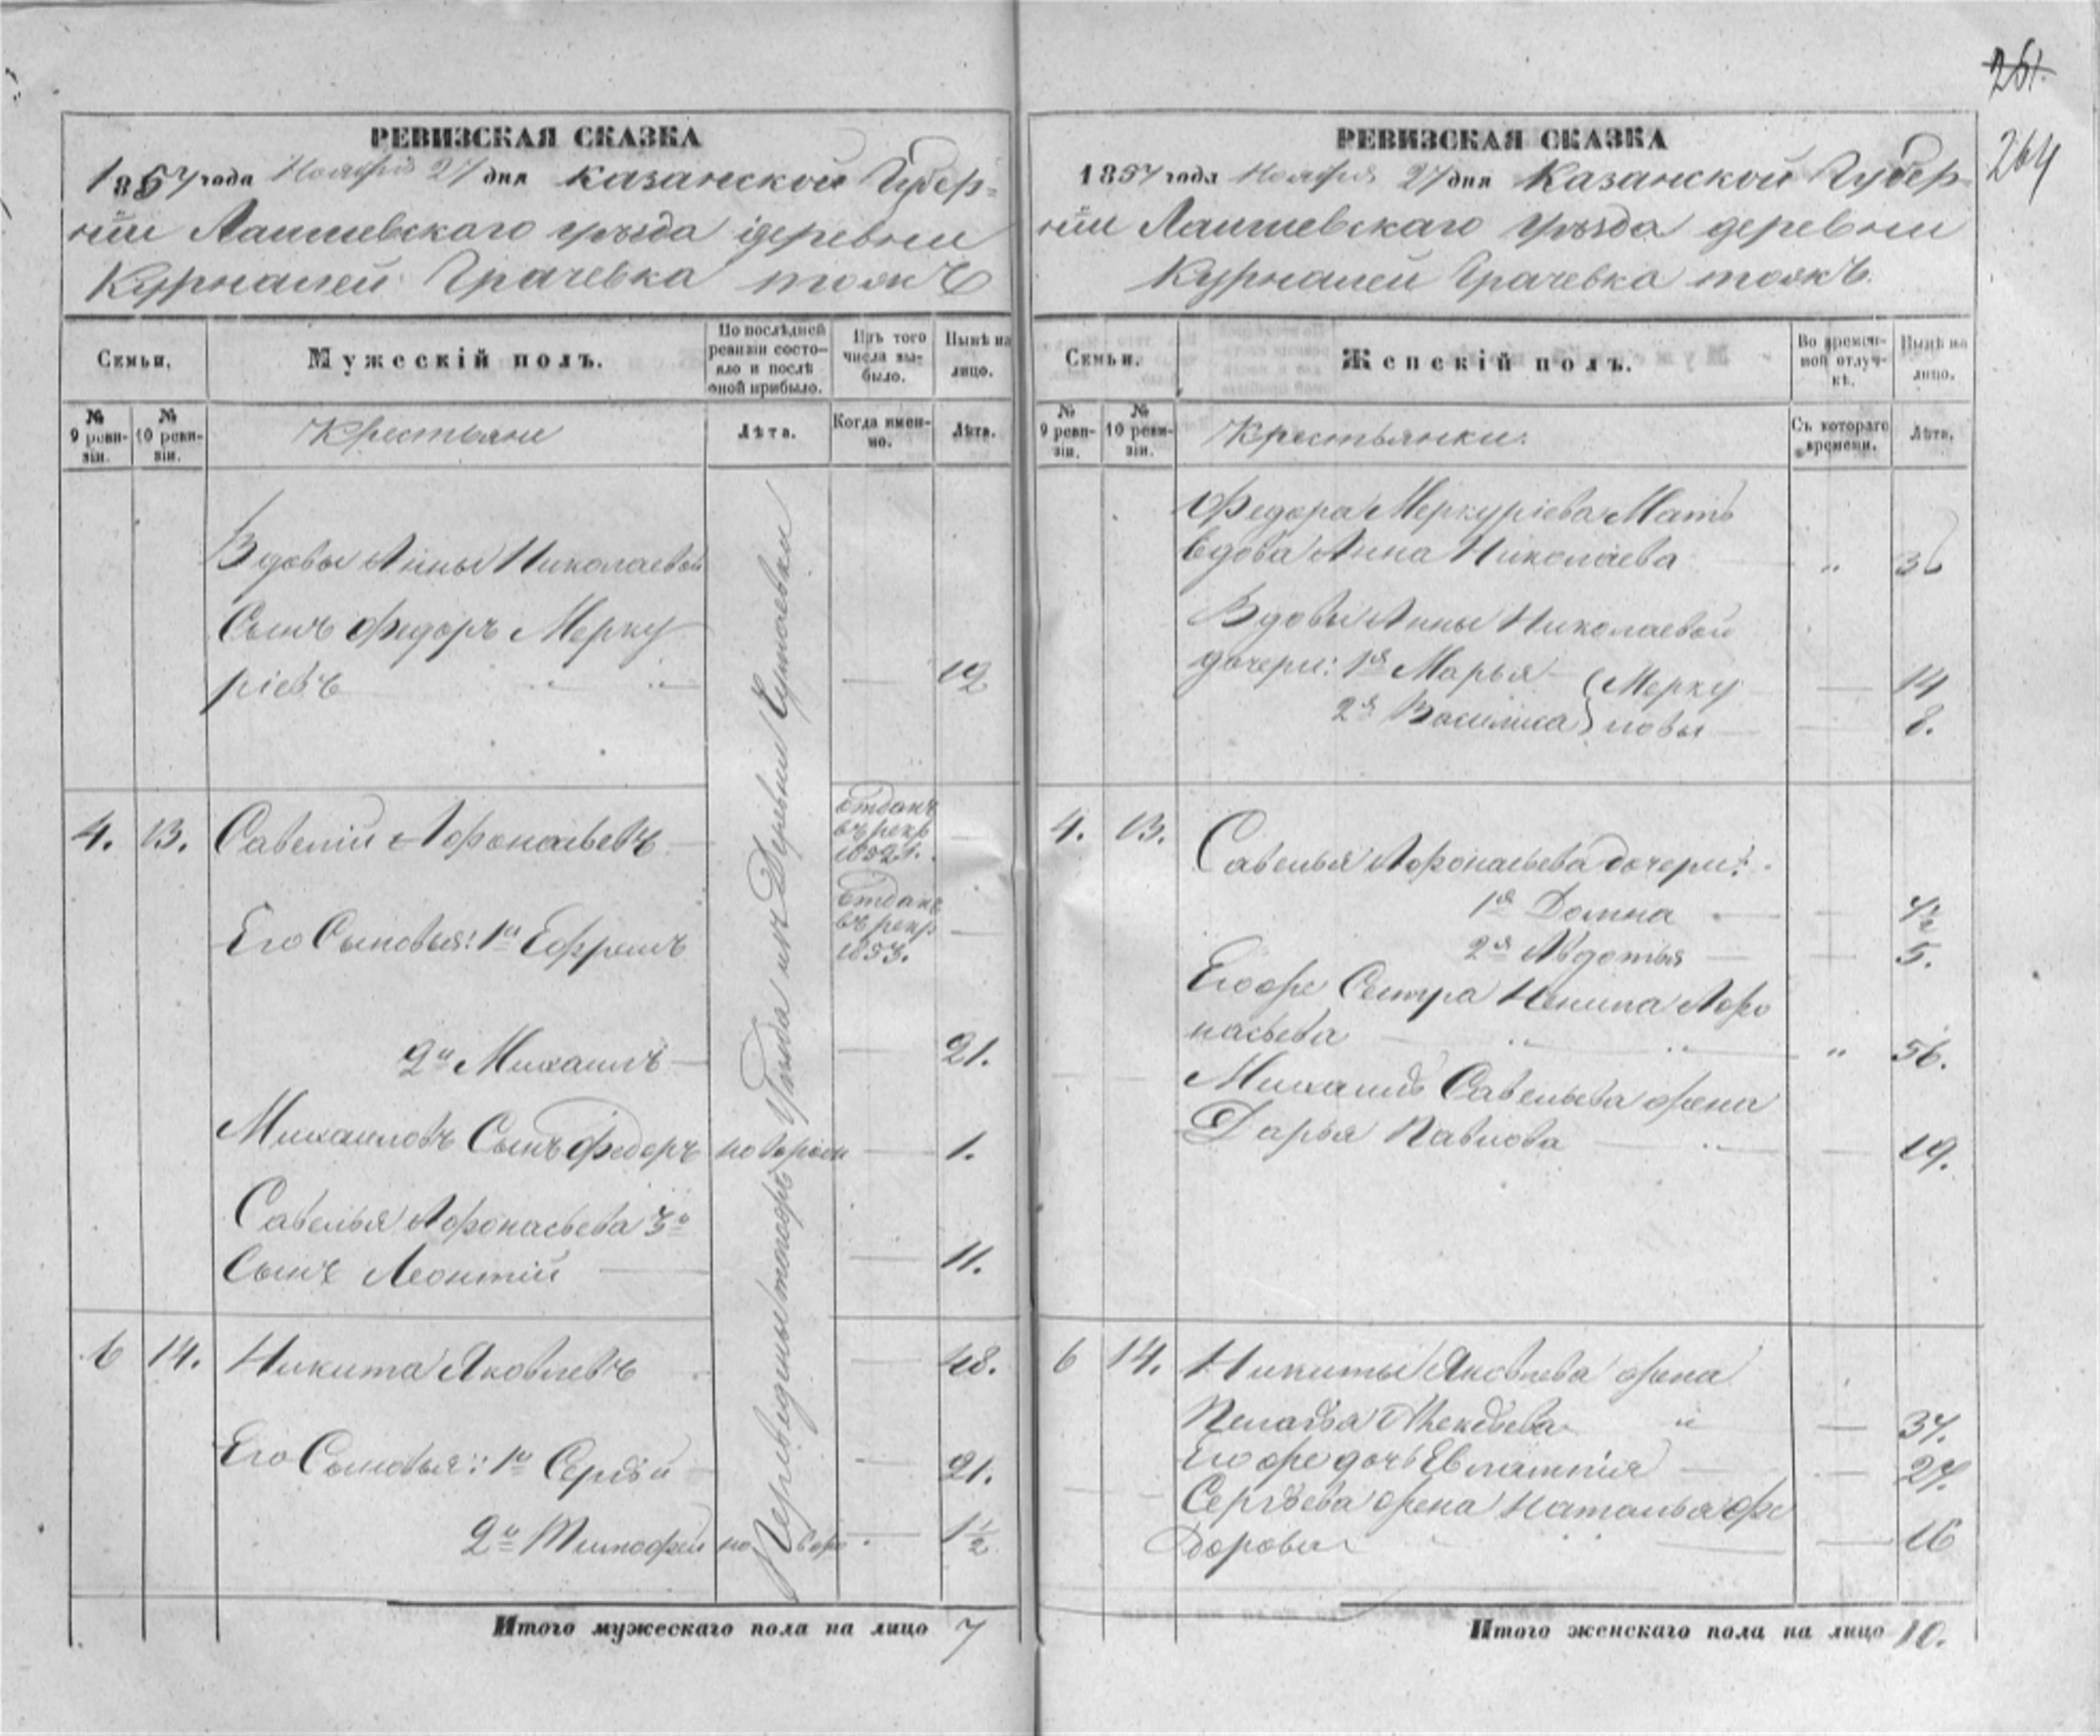 261.
264
РЕВИЗСКАЯ СКАЗКА
1857 года Ноября 27 дня Казанской Губер=
нiи Лаишевскаго уѣзда деревни
Курналей Грачевка тожъ
Семьи.
Мужескiй полъ.
По послѣдней ревизiи состо-
яло и послѣ
оной прибыло.
Изъ того
числа вы-
было.
Нынѣ на
лицо.
№
9 реви-
зiи.
№
10 реви-
зiи.
Крестьяне
Лѣта.
Когда имен-
но.
Лѣта.
Вдовы Анны Николаевой
Сынъ Федоръ Мерку
рiевъ " " — 12
4. 13. Савелiй Афонасьевъ Отданъ
въ рекр
1852 г. —
Его Сыновья: 1й Ефремъ Отданъ
въ рекр
1853. —
2й Михаилъ — — 21.
Михаиловъ Сынъ Федоръ новорож — 1.
Савелья Афонасьева 3й
Сынъ Леонтiй — — 11.
6 14. Никита Яковлевъ — 48.
Его Сыновья: 1й Сергѣй — 21.
2й Тимофей но воро — 1½
Переведены Уѣзда изъ Деревни
Итого мужескаго пола на лицо 7
РЕВИЗСКАЯ СКАЗКА
1857 года Ноября 27 дня Казанской Губер=
нiи Лаишевскаго уѣзда деревни
Курналей Грачевка тожъ.
Семьи.
Женскiй полъ.
Во времен-
ной отлуч-
кѣ.
Нынѣ на
лицо.
№
9 реви-
зiи.
№
10 реви-
зiи.
Крестьянки.
Съ котораго
времени.
Лѣта.
Федора Меркурiева Мать
вдова Анна Николаева " 36
Вдовы Анны Николаевой
дочери: 1я Марья Мерку — 14
2я Василиса ловы — 8.
4. 13. Савелья Афонасьева дочери:
1я Домна — — 4½
2я Авдотья — — 5.
Егоже Сестра Ненила Афо
насьева " " " 56.
Михаила Савельева жена
Дарья Павлова — " — 19.
6 14. Никиты Яковлева жена
Пелагѣя " — 37.
Егоже дочь Евлампiя — — 27.
Сергѣева жена Наталья Фе
дорова — — 16
Итого женскаго пола на лицо 10.